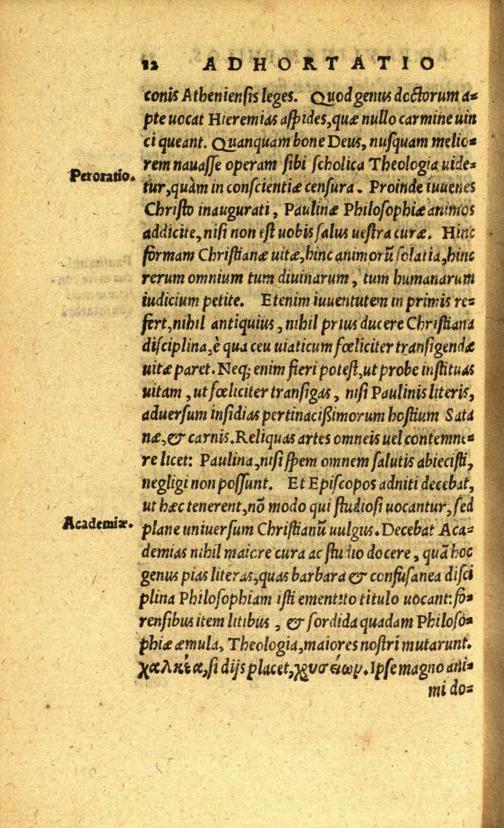 12 ADHORTATIO
conis Atheniensis leges. Quod genus doctorum a=
pte uocat Hieremias aspides, quæ nullo carmine uin
ci queant. Quanquam bone Deus, nusquam melio=
rem nauasse operam sibi scholica Theologia uide=
Peroratio.
tur, quàm in conscientiæ censura. Proinde iuuenes
Christo inaugurati, Paulinæ Philosophiæ animos
addicite, nisi non est uobis salus uestra curæ. Hinc
formam Christianæ uitæ, hinc animorũ solatia, hinc
rerum omnium tum diuinarum, tum humanarum
iudicium petite. Etenim iuuentutem in primis re=
fert, nihil antiquius, nihil prius ducere Christiana
disciplina, è qua ceu uiaticum fœliciter transigendæ
uitæ paret. Neq; enim fieri potest, ut probe instituas
uitam, ut fœliciter transigas, nisi Paulinis literis,
aduersum insidias pertinacißimorum hostium Sata
næ, & carnis. Reliquas artes omneis uel contemne=
re licet: Paulina, nisi spem omnem salutis abiecisti,
negligi non possunt. Et Episcopos adniti decebat,
ut hæc tenerent, nõ modo qui studiosi uocantur, sed
Academiæ.
plane uniuersum Christianũ uulgus. Decebat Aca=
demias nihil maiore cura ac studio docere, quã hoc
genus pias literas, quas barbara & confusanea disci
plina Philosophiam isti ementito titulo uocant: fo=
rensibus item litibus, & sordida quadam Philoso=
phiæ æmula, Theologia, maiores nostri mutarunt.
χαλκέια, si dijs placet, χρυσέιων. Ipse magno ani=
mi do=